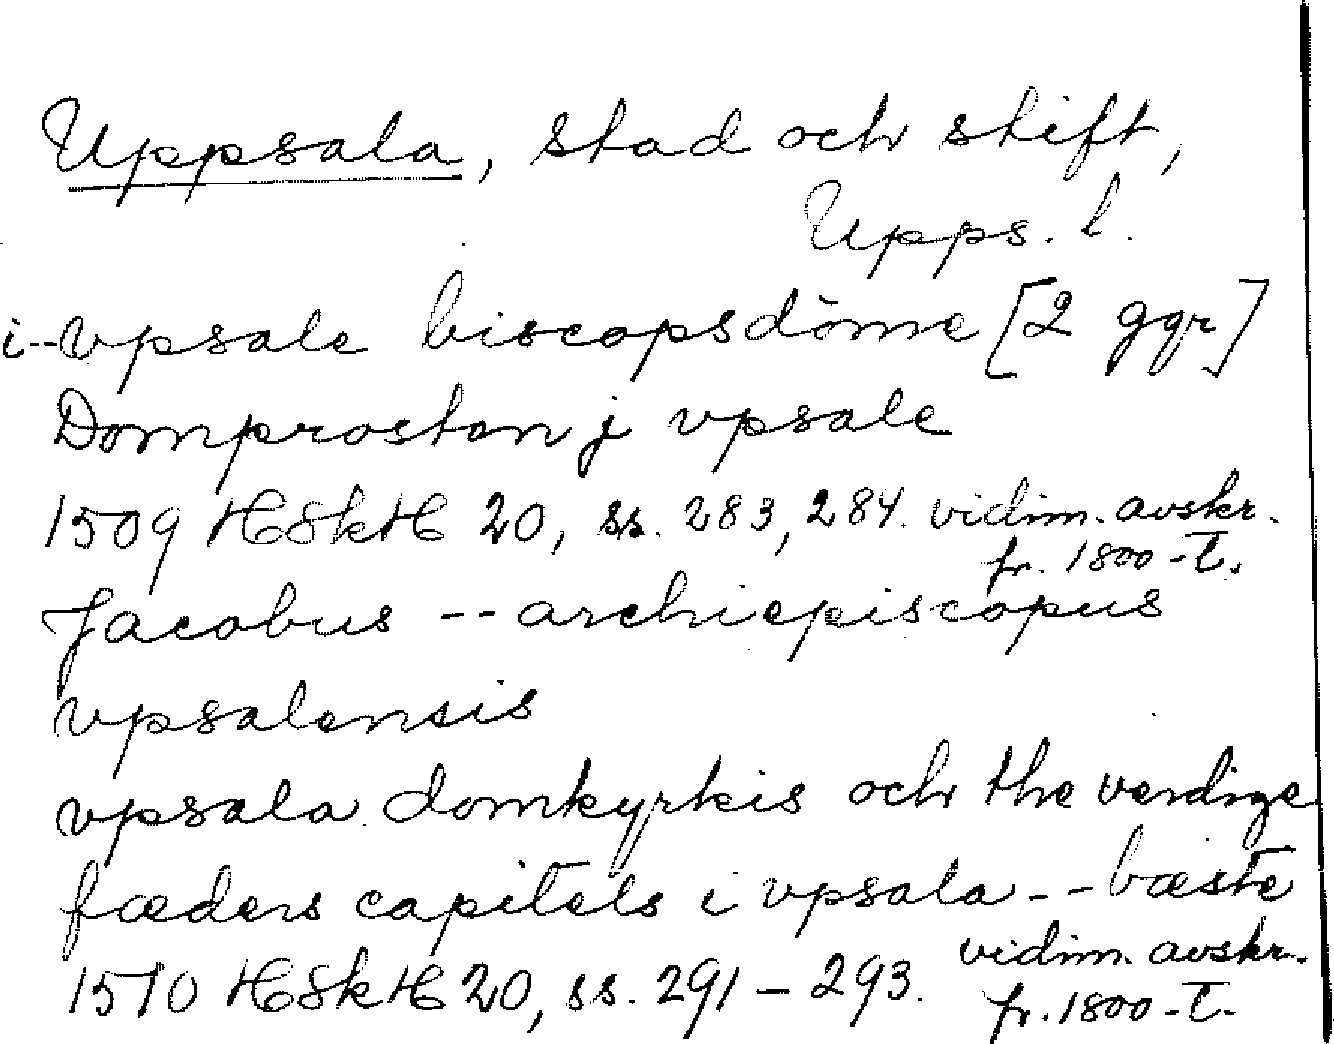 Uppsala, stad och stift,
Upps. l.
i -- vpsale biscopsdöme [2 ggr]
Domprosten j vpsale
1509 HSkH 20, ss. 283, 284. vidim. avskr.
fr. 1800-t.
Jacobus -- archiepiscopus
vpsalensis
vpsala domkyrkis och the verdige
fæders capitels i vpsala -- bæste
1510 HSkH 20, ss. 291-293. vidim. avskr.
fr. 1800-t.